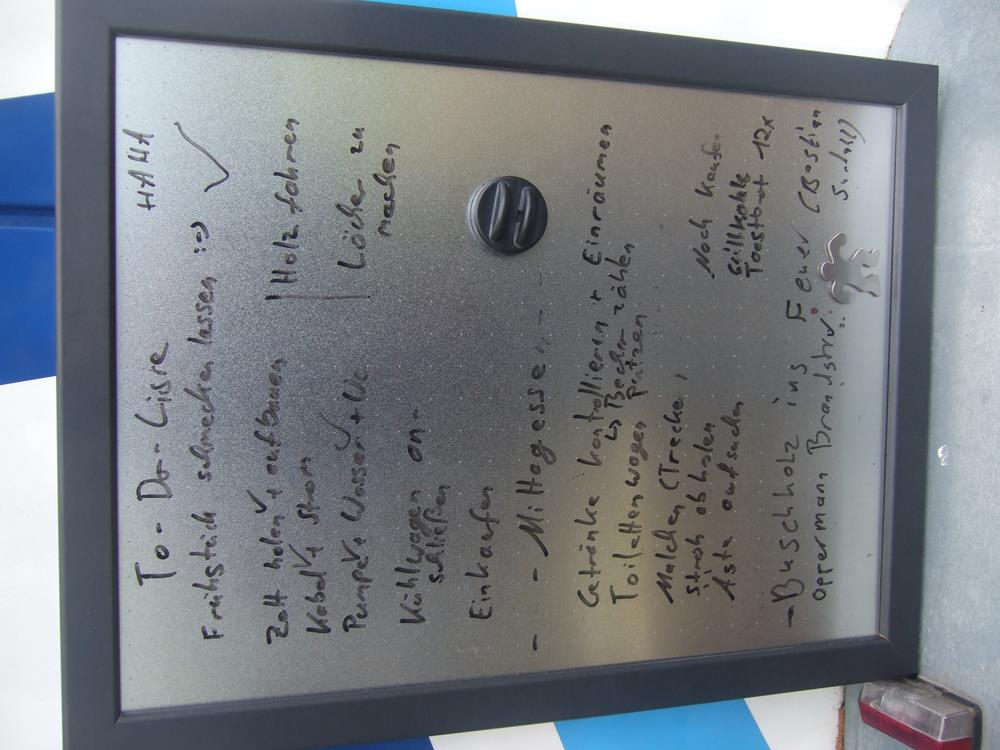 To-Do-Liste HAHA
Frühstück schmecken lassen :-) ✓
Zelt holen ✓ + aufbauen | Holz fahren
Kabel ✓ + Strom
Pumpe ✓ + Wasser ✓ + | Löcher zu machen
Kühlwagen an-
schließen
Einkaufen
- - Mittagessen - -
Getränke kontrollieren + Einräumen
↳ Becher zählen
Toilettenwagen putzen
Mulchen (Trecker,
Stroh abholen
Äste aufsuchen
Noch kaufen
Grillkohle
Toastbrot 12x
- Buschholz ins Feuer (Bastian
Oppermann Brandstr.